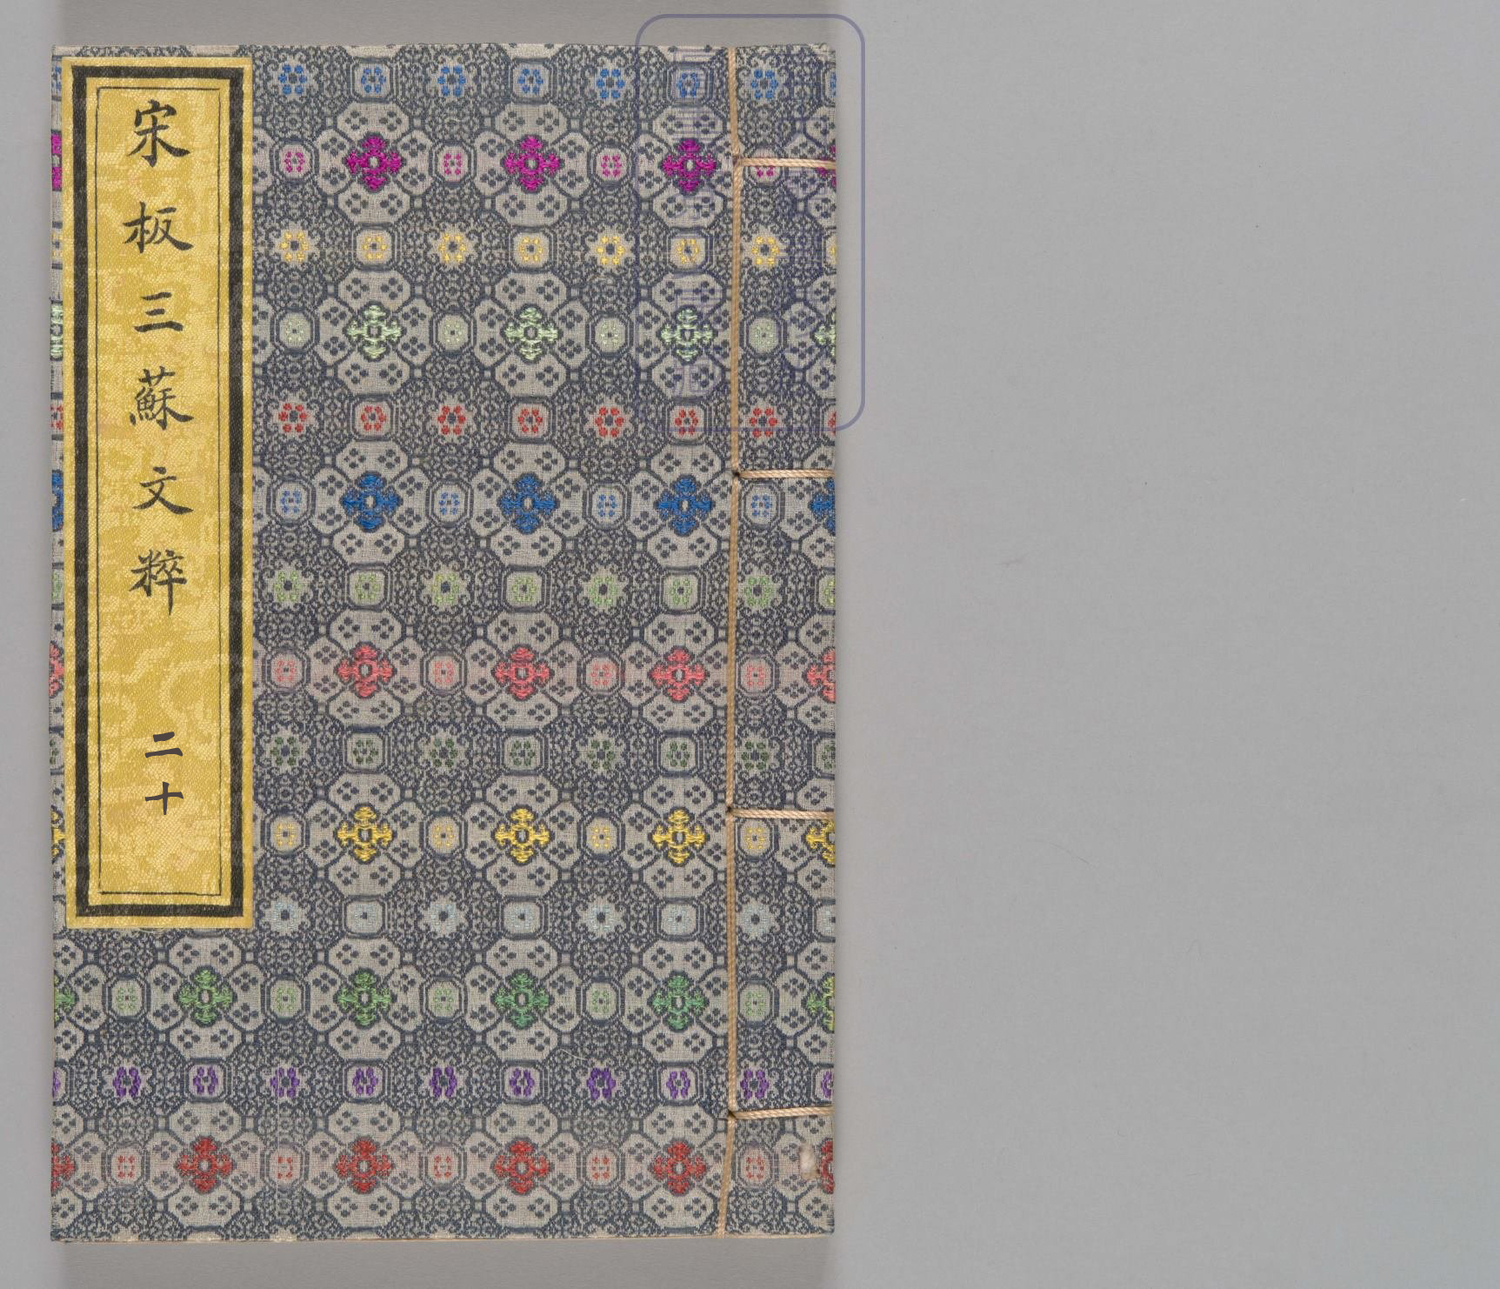 宋板三蘇文粹 二十